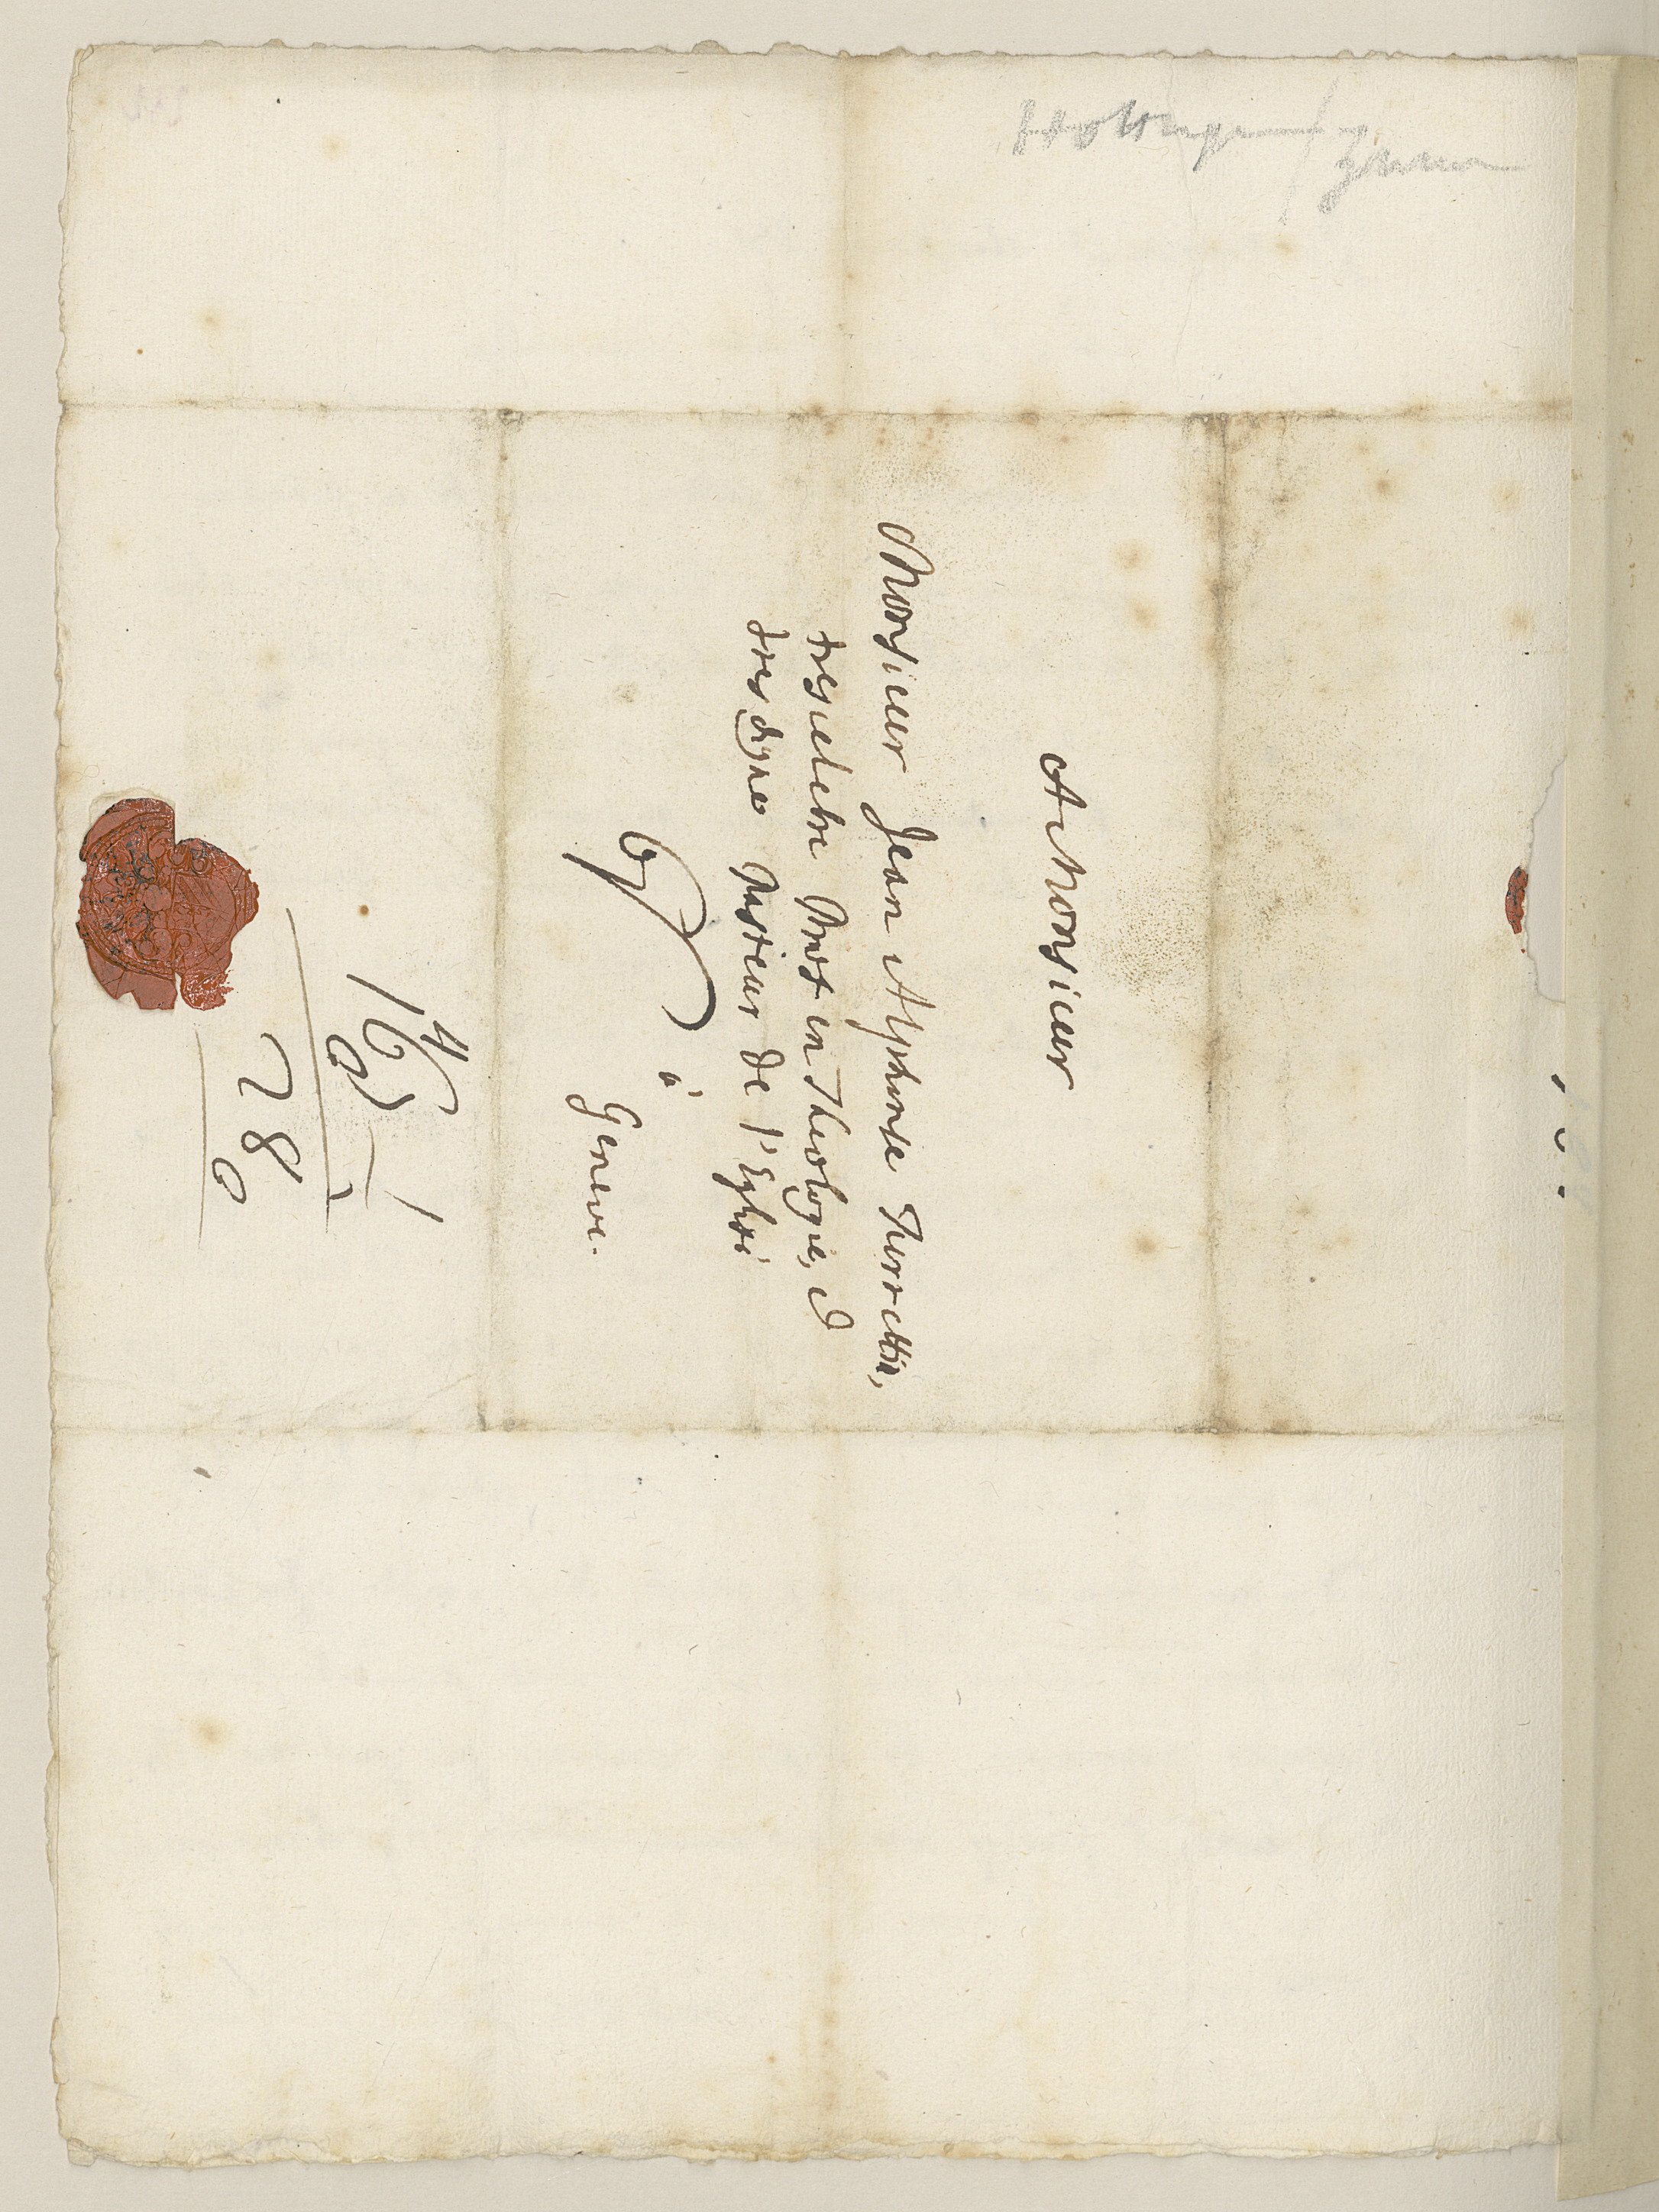 A Monsieur
Monsieur Jean Alphonse Turrettin,
trescelebre Prof en Theologie, et
tres digne Pasteur de l'Eglise
à
Geneve.
280